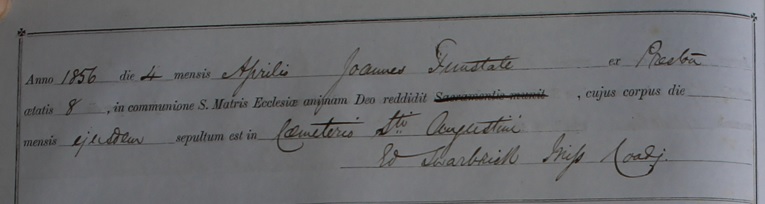 Anno 1856 die 4 mensis Aprilis Joannes Tunstate ex Preston
ætatis 8 , in communione S. Matris Ecclesiæ animam Deo reddidit Sacramentis munit , cujus corpus die
mensis ejusdem sepultum est in Cœmeterio Sti Augustini
Ed Swarbrick Miss Coadj.